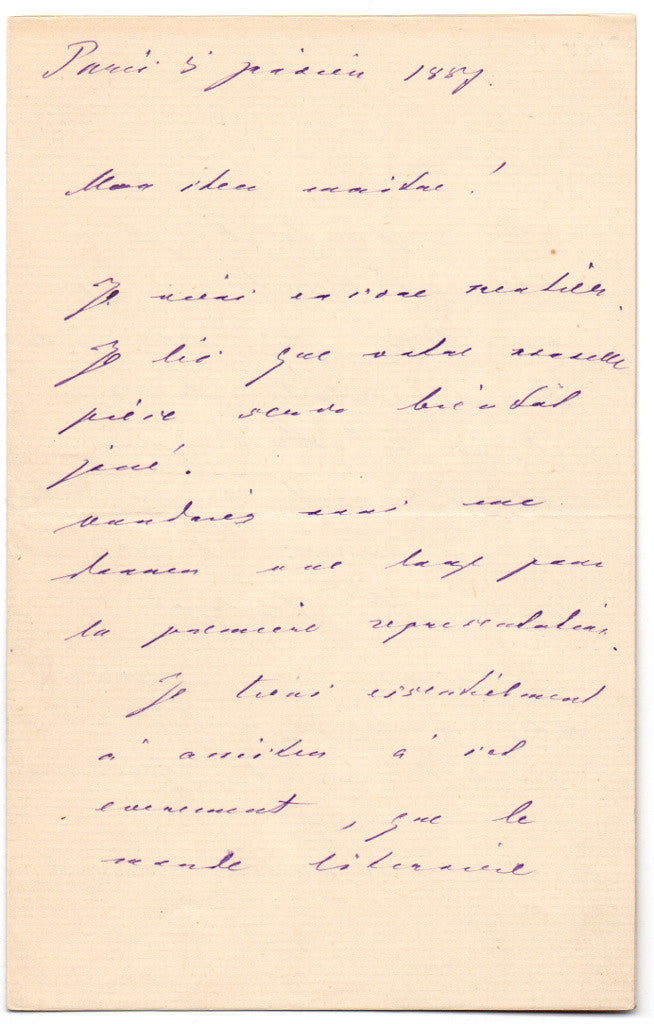 Paris 5 janvier 1887.
Mon cher maître !
Je viens encore mendier.
Je lis que votre nouvelle
pièce sera bientôt
joué.
voudriès vous me
donner une loge pour
la première représentation.
Je tiens essentiélment
à assister à cet
evenement, que le
monde literaire